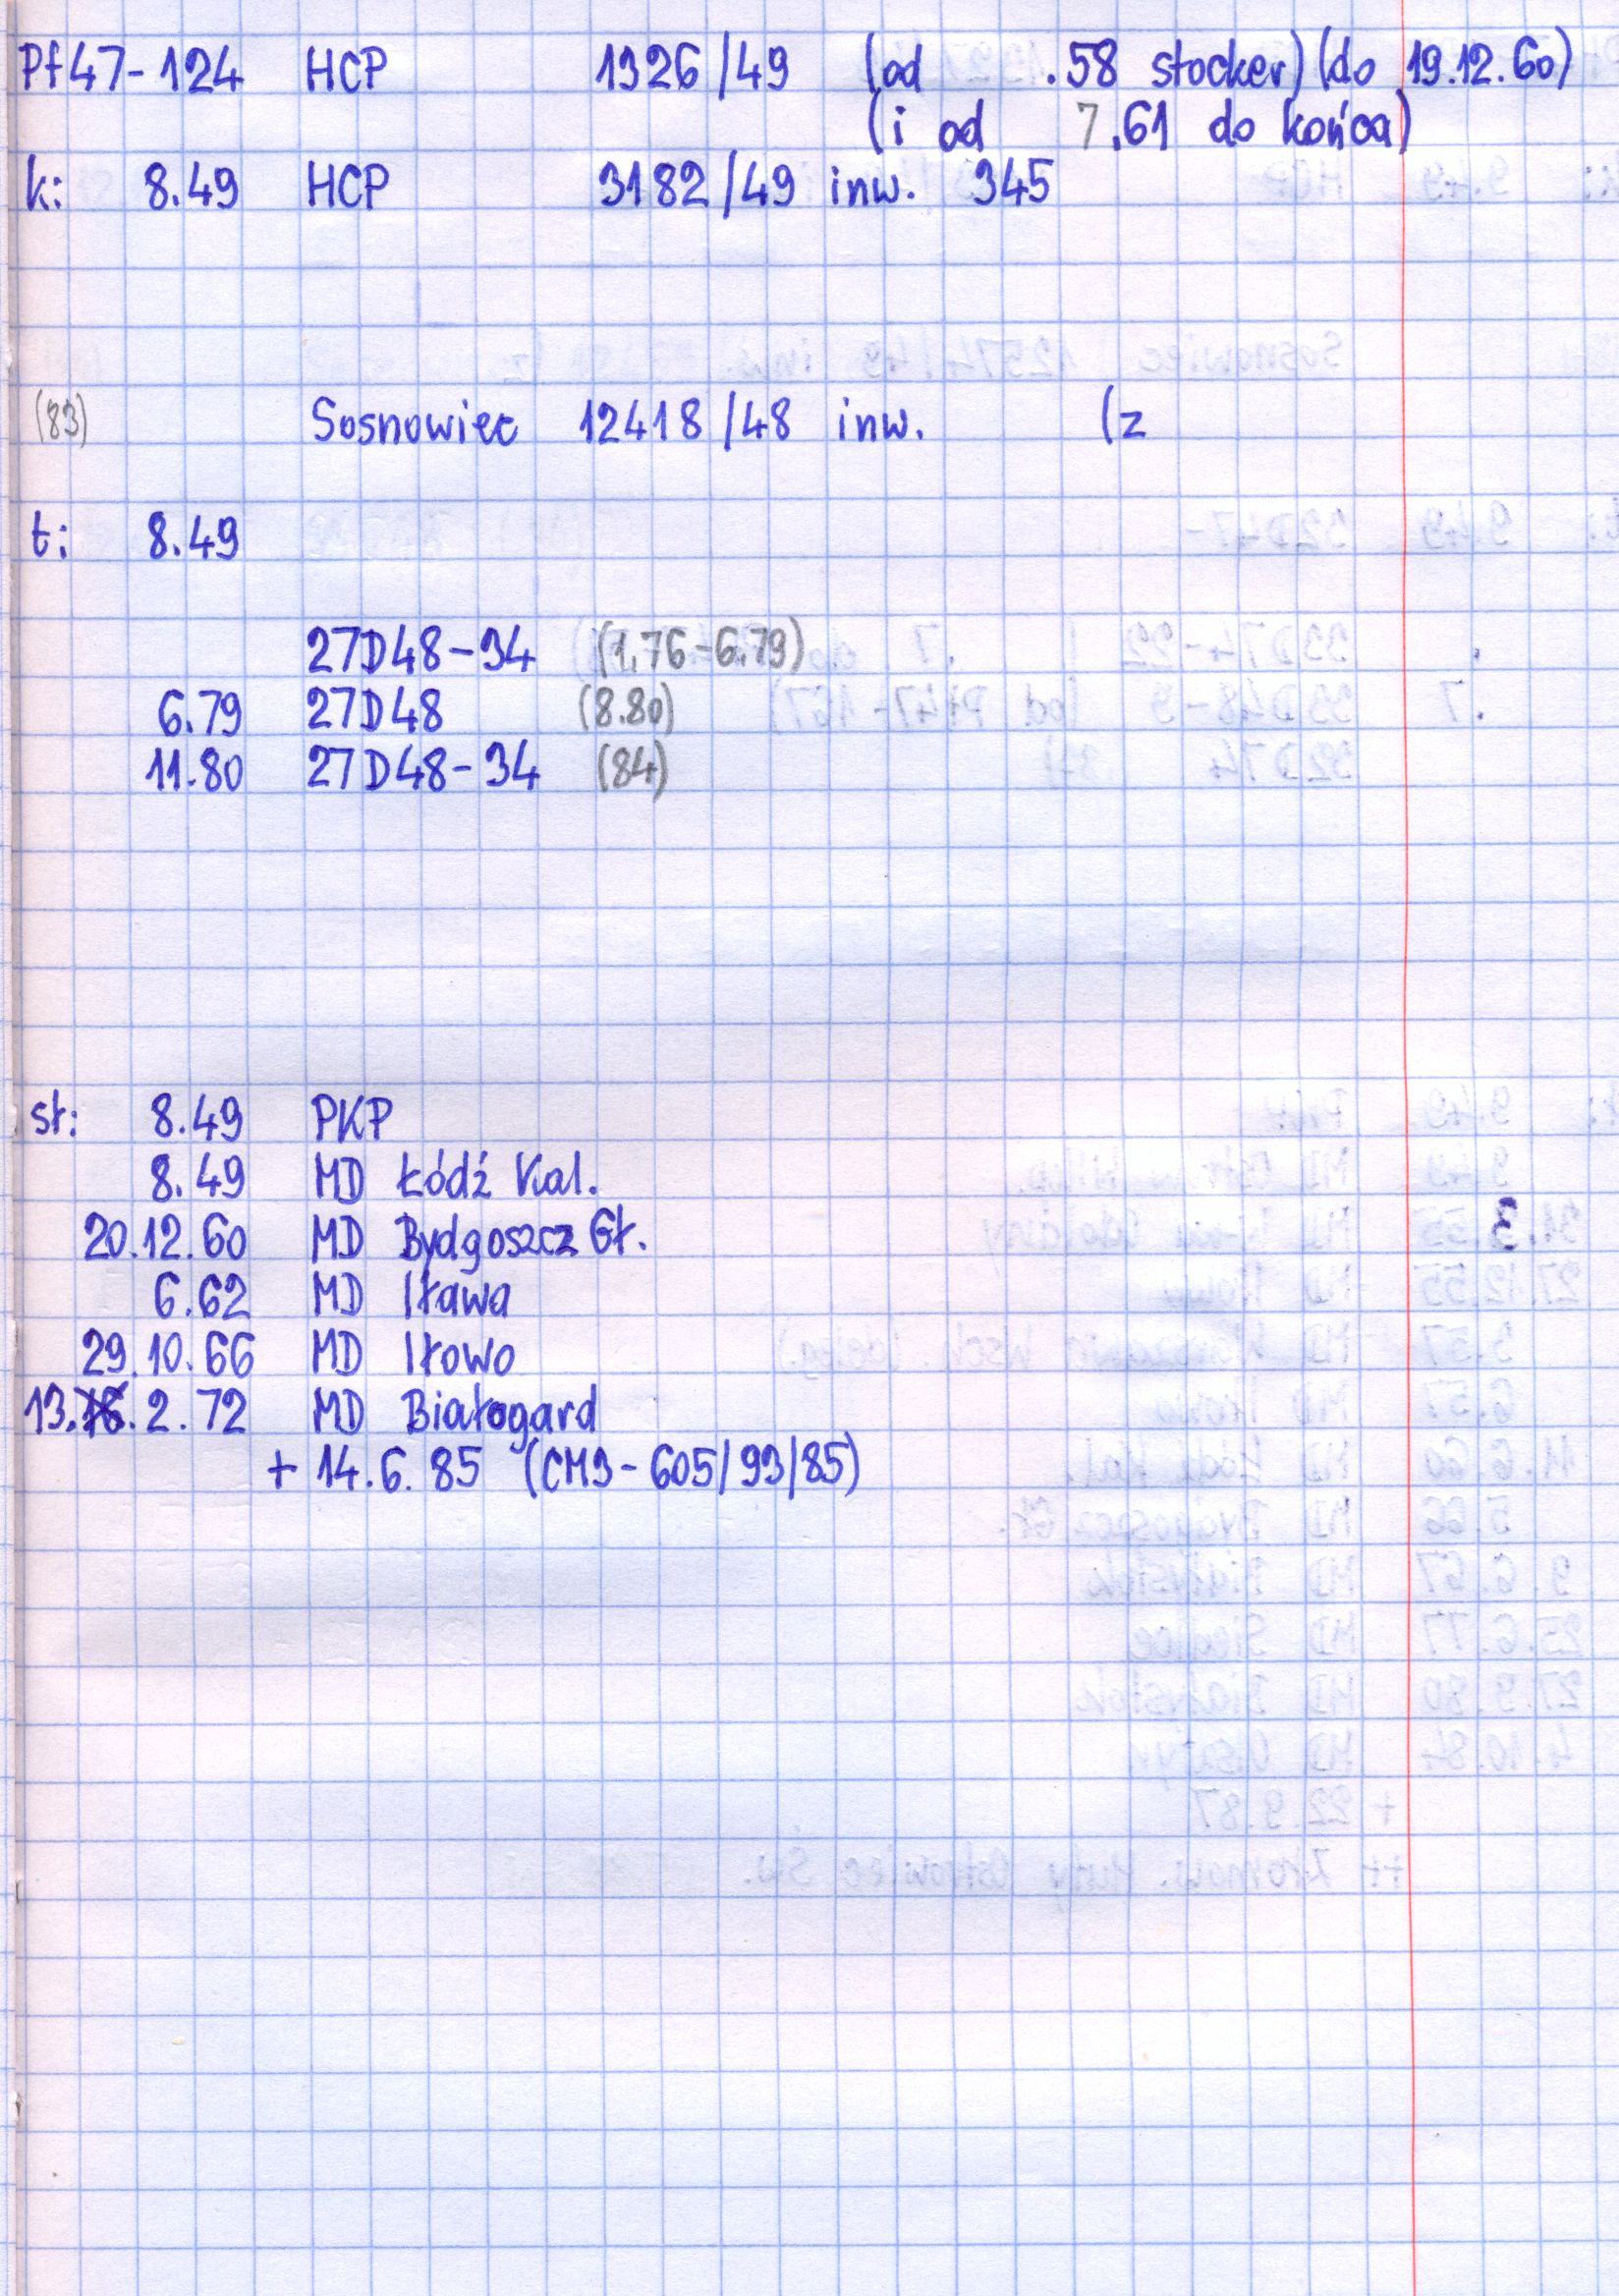 Pt47-124 HCP 1326/49 (od .58 stocker) (do 19.12.60)
(i od 7.61 do końca)
k: 8.49 HCP 3182/49 inw. 345
(83) Sosnowiec 12418/48 inw. (z
t: 8.49
27D48-34 (1.76-6.79)
6.79 27D48 (8.80)
11.80 27D48-34 (84)
st: 8.49 PKP
8.49 MD Łódź Kal.
20.12.60 MD Bydgoszcz Gł.
6.62 MD Iława
29.10.66 MD Iłowo
13.2.72 MD Białogard
+ 14.6.85 (CM3-605/93/85)